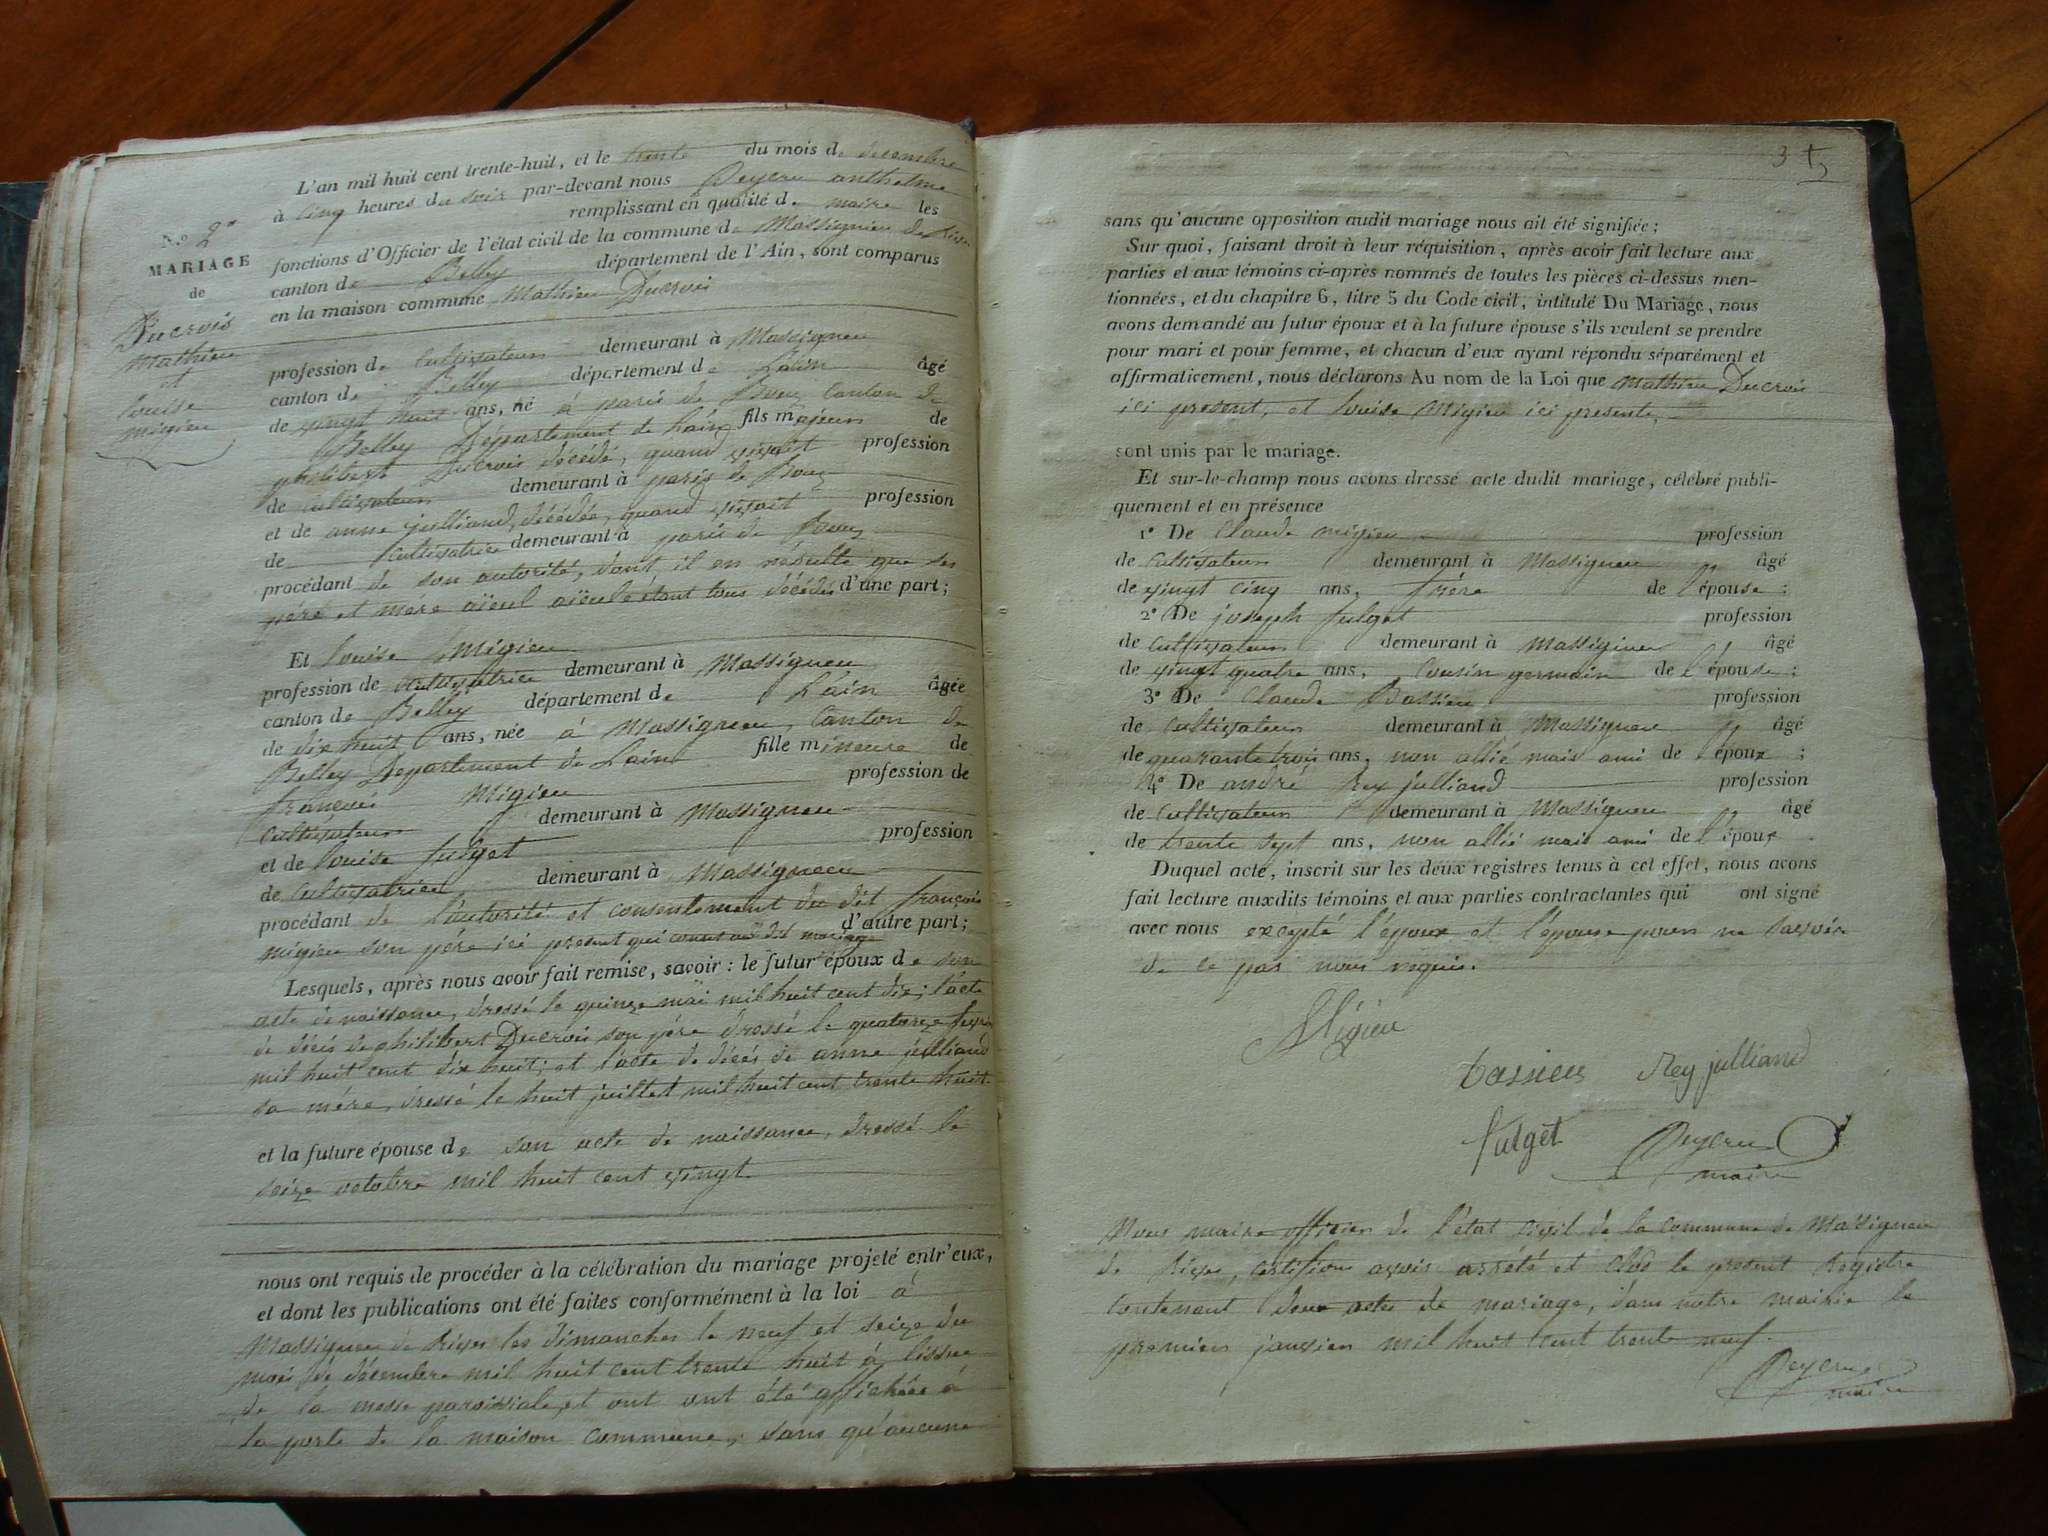 N.o 2e
MARIAGE
de
Ducrois
Mathieu
et
Louise
migieu
L'an mil huit cent trente-huit, et le trente du mois de decembre
à cinq heures du soir par-devant nous Peycru anthelme
remplissant en qualité de maire les
fonctions d'Officier de l'état civil de la commune de Massignieu de Rives
canton de Belley département de l'Ain, sont comparus
en la maison commune Mathieu Ducrois
profession de Cultivateur demeurant à Massigneu
canton de Belley département de L'ain âgé
de vingt huit ans, né à paris de Bouz Canton de
Belley Département de L'ain fils majeur de
philibert Ducrois décédé, quand vivait profession
de Cultivateur demeurant à paris de Bouz
et de anne julliand, décédée, quand vivait profession
de Cultivatrice demeurant à paris de Bouz
procédant de son autorité, dont il en résulte que ses
père et mère aïeul aïeule étant tous décédés d'une part;
Et Louise Migieu
profession de Cultivatrice demeurant à Massigneu
canton de Belley département de L'ain âgée
de dix huit ans, née à Massigneu, Canton de
Belley Departement de Lain fille mineure de
françois Migieu profession de
Cultivateur demeurant à Massigneu
et de Louise fulget profession
de Cultivatrice demeurant à Massigneu
procédant de l'autorité et consentement du dit françois
migieu son père ici present qui consent au dit mariage d'autre part;
Lesquels, après nous avoir fait remise, savoir: le futur époux de son
acte de naissance, dressé le quinze mai mil huit cent dix; l'acte
de décés de philibert Ducrois son père dressé le quatorze
mil huit cent dix huit; et l'acte de décés de anne julliand
sa mére, dressé le huit juillet mil huit cent trente huit.
et la future épouse de son acte de naissance, dressé le
seize octobre mil huit cent vingt
nous ont requis de procéder à la célébration du mariage projeté entr'eux,
et dont les publications ont été faites conformément à la loi à
Massigneu de Rives les dimanches le neuf et seize du
mois de décembre mil huit cent trente huit à lissue
de la messe paroissiale, et ont ont été affichées à
la porte de la maison commune, sans qu'aucune
3
sans qu'aucune opposition audit mariage nous ait été signifiée;
Sur quoi, faisant droit à leur réquisition, après avoir fait lecture aux
parties et aux témoins ci-après nommés de toutes les pièces ci-dessus men-
tionnées, et du chapitre 6, titre 5 du Code civil, intitulé Du Mariage, nous
avons demandé au futur époux et à la future épouse s'ils veulent se prendre
pour mari et pour femme, et chacun d'eux ayant répondu séparément et
affirmativement, nous déclarons Au nom de la Loi que Mathieu Ducrois
ici present, et Louise Migieu ici presente,
sont unis par le mariage.
Et sur-le-champ nous avons dressé acte dudit mariage, célébré publi-
quement et en présence
1o De Claude migieu profession
de Cultivateur demeurant à Massigneu âgé
de vingt cinq ans, frère de l'épouse;
2o De joseph fulget profession
de Cultivateur demeurant à Massigneu âgé
de vingt quatre ans, Cousin germain de l'épouse;
3o De Claude Bassieu profession
de Cultivateur demeurant à Massigneu âgé
de quarante trois ans, non allié mais ami de l'époux;
4o De andré Rey julliand profession
de Cultivateur demeurant à Massigneu âgé
de trente sept ans, non allié mais ami de l'époux
Duquel acte, inscrit sur les deux registres tenus à cet effet, nous avons
fait lecture auxdits témoins et aux parties contractantes qui ont signé
avec nous excepté l'époux et l'épouse pour ne savoir
de ce par nous requis.
Migieu
bassieu Rey julliand
fulget Peycru
maire
Nous maire officier de l'état civil de la commune de Massigneu
de Rives, certifions avoir arrété et clos le present Registre
Contenant deux actes de mariage, dans notre mairie le
premier janvier mil huit cent trente neuf.
Peycru
maire